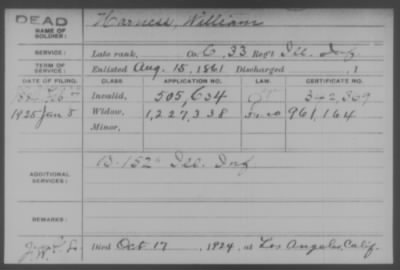 DEAD
NAME OF SOLDIER: Harness, William
SERVICE: Late rank, Co. C, 33 Reg't Ill. Inf.
TERM OF SERVICE: Enlisted Aug. 15, 1861 Discharged , 1
DATE OF FILING. CLASS. APPLICATION NO. LAW. CERTIFICATE NO.
Invalid, 505,634
1925 Jan 5 Widow, 1,227,338 961,164
Minor,
ADDITIONAL SERVICES: B. 152" Ill. Inf.
REMARKS:
Died Oct 17, 1924, at Los Angeles, Calif.